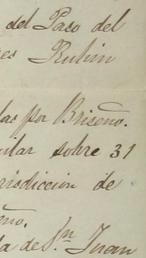 del Paso del
es Rubin
las por Briseño.
ular sobre 31
risdiccion de
eño.
a de Sn Juan